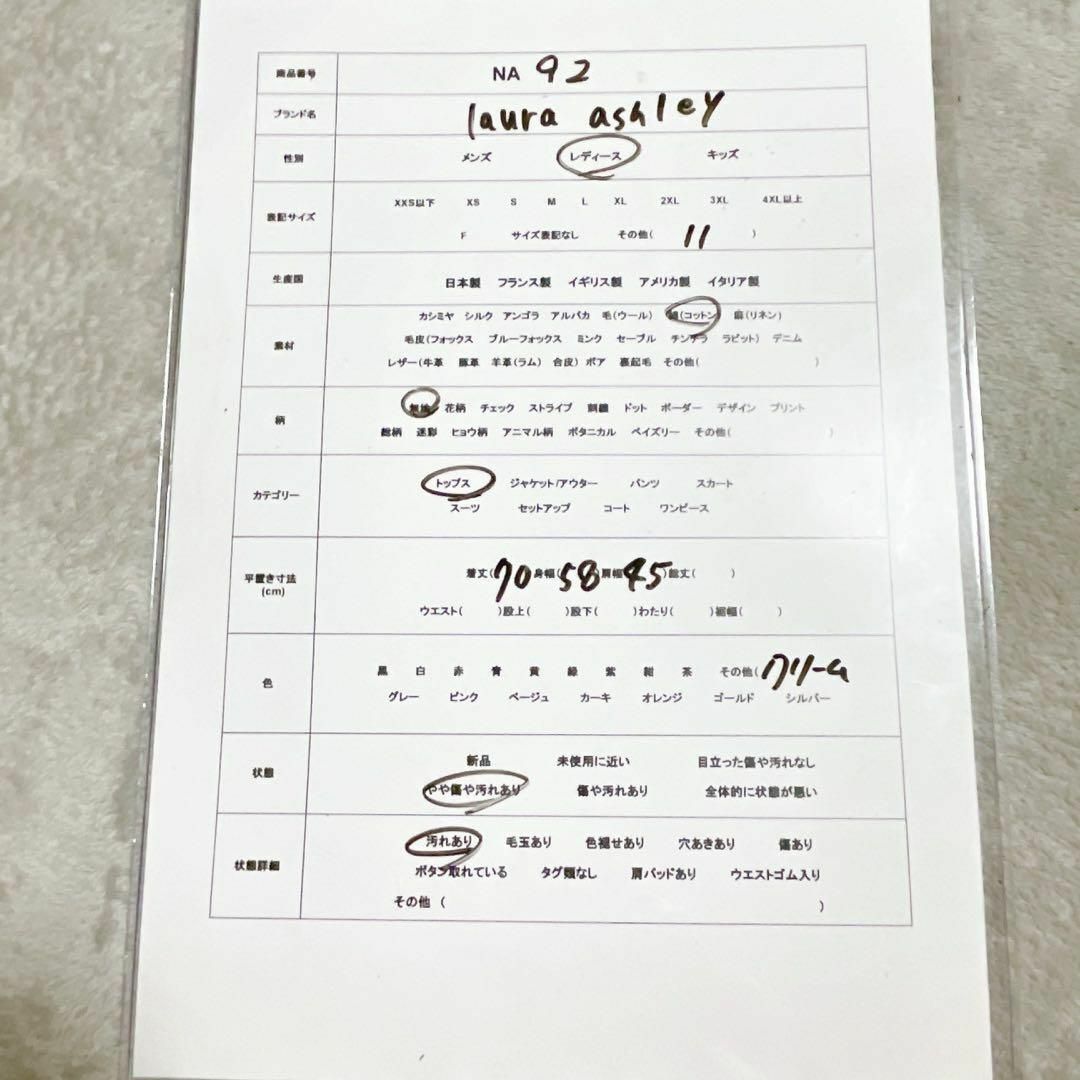 商品番号 NA 92
ブランド名 laura ashley
性別 メンズ レディース キッズ
表記サイズ XXS以下 XS S M L XL 2XL 3XL 4XL以上
F サイズ表記なし その他( 11 )
生産国 日本製 フランス製 イギリス製 アメリカ製 イタリア製
素材 カシミヤ シルク アンゴラ アルパカ 毛(ウール) 綿(コットン) 麻(リネン)
毛皮(フォックス ブルーフォックス ミンク セーブル チンチラ ラビット) デニム
レザー(牛革 豚革 羊革(ラム) 合皮) ボア 裏起毛 その他( )
柄 無地 花柄 チェック ストライプ 刺繍 ドット ボーダー デザイン プリント
総柄 迷彩 ヒョウ柄 アニマル柄 ボタニカル ペイズリー その他( )
カテゴリー トップス ジャケット/アウター パンツ スカート
スーツ セットアップ コート ワンピース
平置き寸法 (cm) 着丈( 70 )身幅( 58 )肩幅( 45 )総丈( )
ウエスト( )股上( )股下( )わたり( )裾幅( )
色 黒 白 赤 青 黄 緑 紫 紺 茶 その他( クリーム
グレー ピンク ベージュ カーキ オレンジ ゴールド シルバー
状態 新品 未使用に近い 目立った傷や汚れなし
やや傷や汚れあり 傷や汚れあり 全体的に状態が悪い
状態詳細 汚れあり 毛玉あり 色褪せあり 穴あきあり 傷あり
ボタン取れている タグ類なし 肩パッドあり ウエストゴム入り
その他 ( )